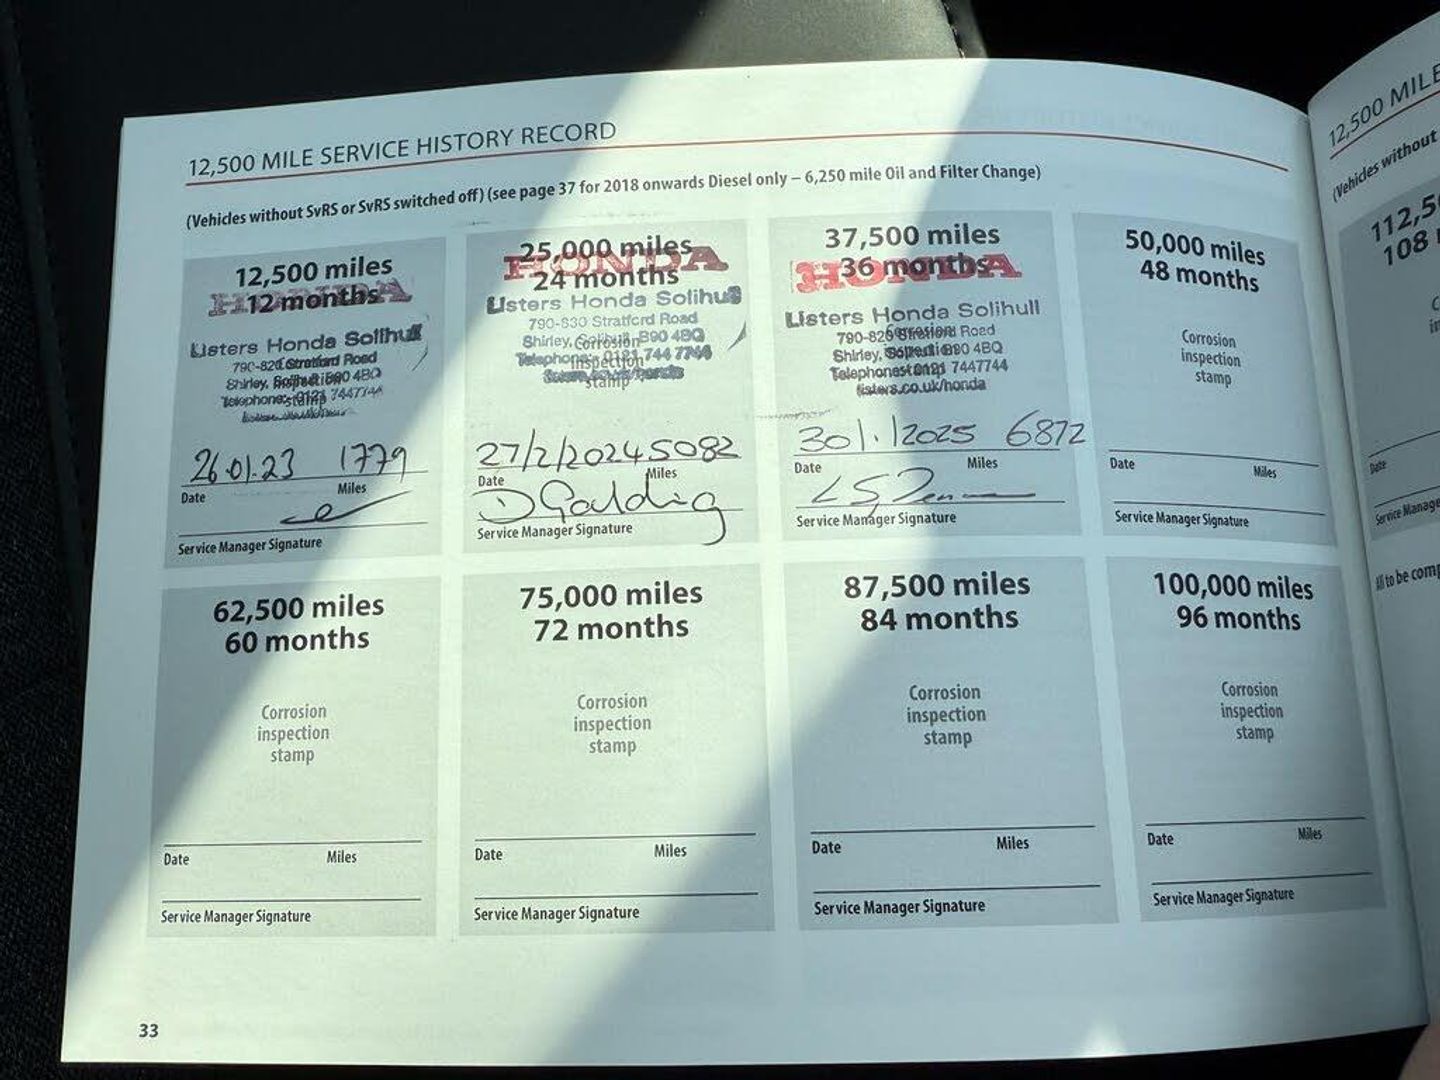 12,500 MILE SERVICE HISTORY RECORD
(Vehicles without SvRS or SvRS switched off) (see page 37 for 2018 onwards Diesel only – 6,250 mile Oil and Filter Change)
12,500 miles
12 months
HONDA
Listers Honda Solihull
790-826 Stratford Road
Shirley, Solihull B90 4BQ
Telephone: 0121 7447744
26.01.23 1779
Date Miles
Service Manager Signature
25,000 miles
24 months
HONDA
Listers Honda Solihull
790-830 Stratford Road
Shirley, Solihull, B90 4BQ
Telephone: 0121 744 7744
Corrosion
inspection
stamp
27/2/2024 5082
Date Miles
D Goulding
Service Manager Signature
37,500 miles
36 months
HONDA
Listers Honda Solihull
790-826 Stratford Road
Shirley, Solihull B90 4BQ
Telephone: 0121 7447744
listers.co.uk/honda
30/1/2025 6872
Date Miles
Service Manager Signature
50,000 miles
48 months
Corrosion
inspection
stamp
Date Miles
Service Manager Signature
62,500 miles
60 months
Corrosion
inspection
stamp
Date Miles
Service Manager Signature
75,000 miles
72 months
Corrosion
inspection
stamp
Date Miles
Service Manager Signature
87,500 miles
84 months
Corrosion
inspection
stamp
Date Miles
Service Manager Signature
100,000 miles
96 months
Corrosion
inspection
stamp
Date Miles
Service Manager Signature
33
12,500 MILE
(Vehicles without
112,5
108
Date
Service Manage
All to be comp